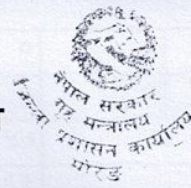 नेपाल सरकार
गृह मन्त्रालय
प्रशासन कार्यालय
मोरङ